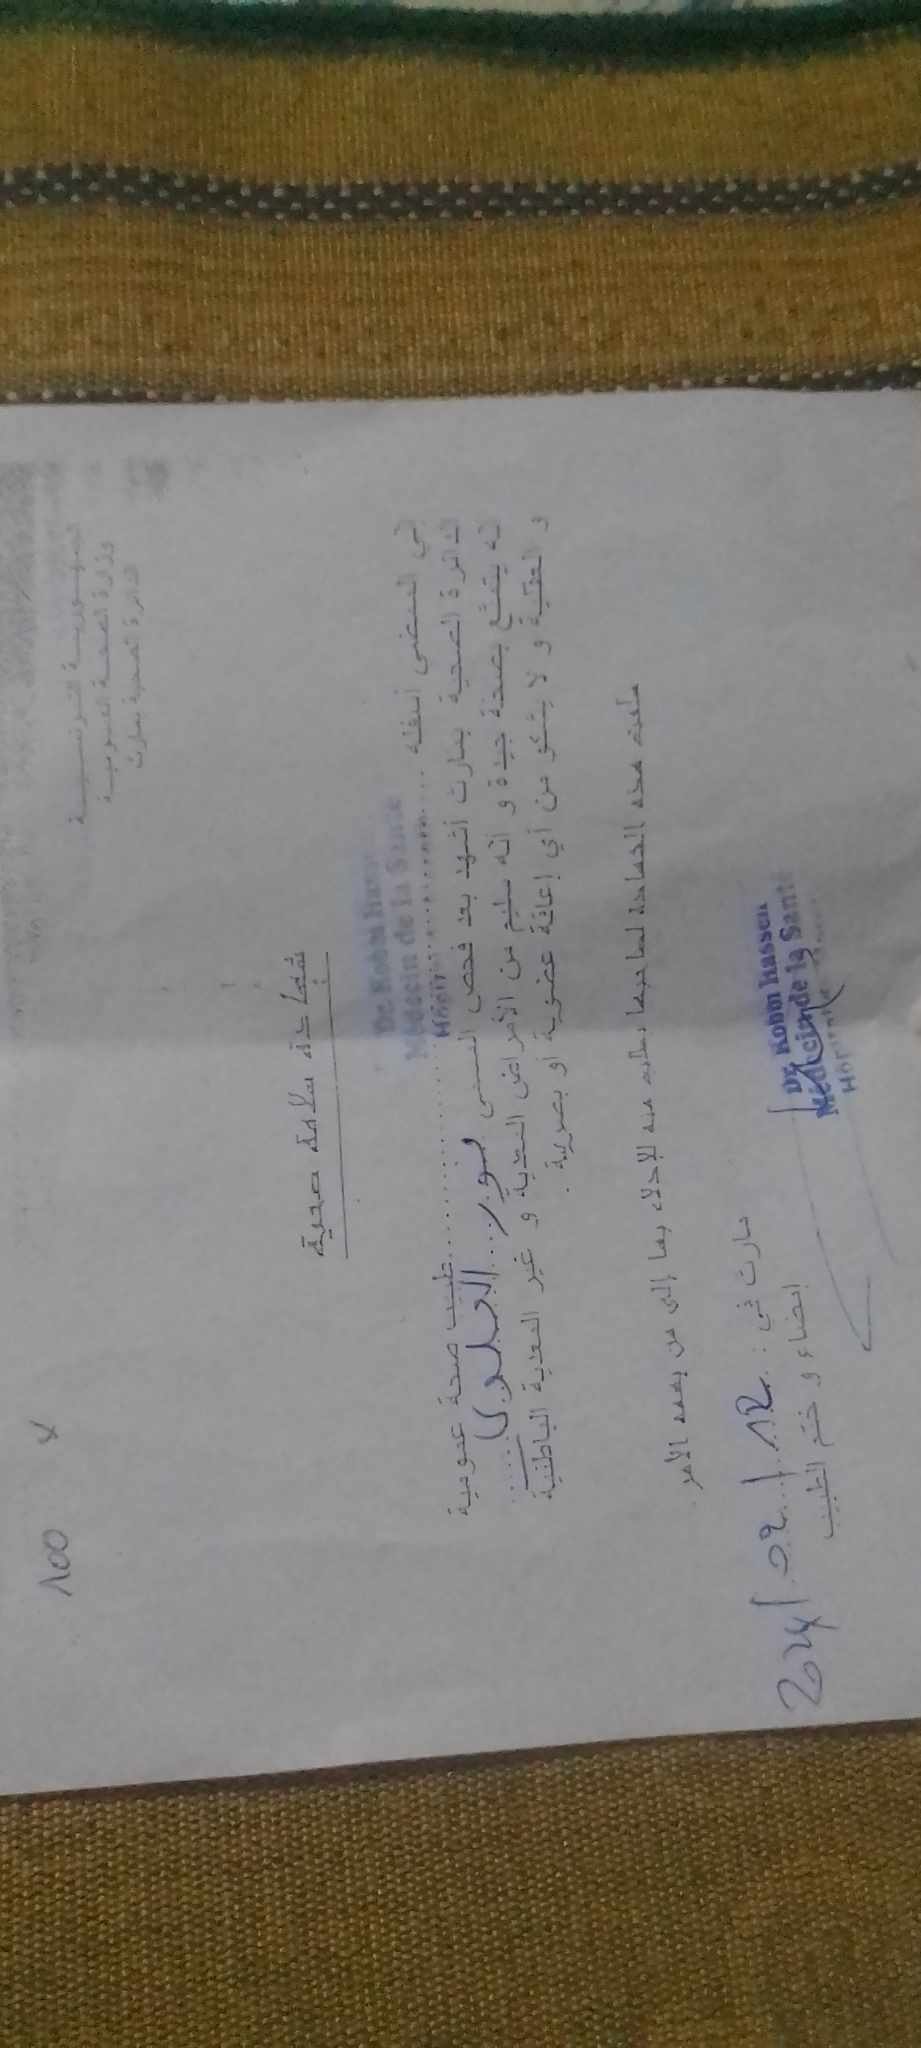 100 x
الجمهورية التونسية
وزارة الصحة العمومية
الدائرة الصحية بمارث
شهادة سلامة صحية
Dr. Kobbi Hassen
Médecin de la Santé
إني الممضي أسفله .......... طبيب صحة عمومية
الدائرة الصحية بمارث أشهد بعد فحص المسمى
له يتمتع بصحة جيدة و أنه سليم من الأمراض المعدية و غير المعدية الباطنية
و العقلية و لا يشكو من أي إعاقة عضوية أو بصرية .
سلمت هذه الشهادة لصاحبها بطلب منه للإدلاء بها إلى من يهمه الأمر .
مارث في : 12 / 09 / 2024
إمضاء و ختم الطبيب
Dr. Kobbi Hassen
Médecin de la Santé